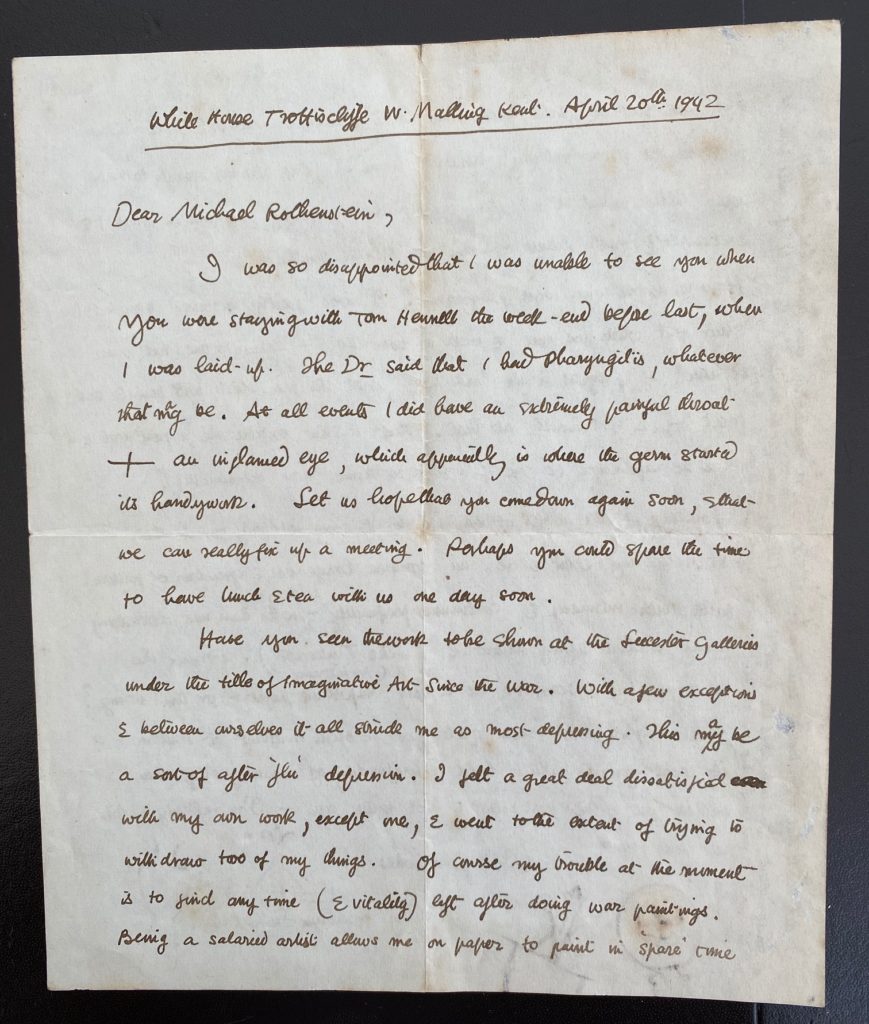 White House Trottiscliffe W. Malling Kent. April 20th 1942
Dear Michael Rothenstein,
I was so disappointed that I was unable to see you when
you were staying with Tom Hennell the week-end before last, when
I was laid-up. The Dr said that I had Pharyngitis, whatever
that may be. At all events I did have an extremely painful throat
+ an inflamed eye, which apparently is where the germ started
its handywork. Let us hope that you come down again soon, so that
we can really fix up a meeting. Perhaps you could spare the time
to have lunch & tea with us one day soon.
Have you seen the work to be shown at the Leicester Galleries
under the title of Imaginative Art Since the War. With a few exceptions
& between ourselves it all struck me as most depressing. This may be
a sort of after 'flu' depression. I felt a great deal dissatisfied
with my own work, except one, & went to the extent of trying to
withdraw too of my things. Of course my trouble at the moment
is to find any time (& vitality) left after doing war paintings.
Being a salaried artist allows me on paper to paint in 'spare' time